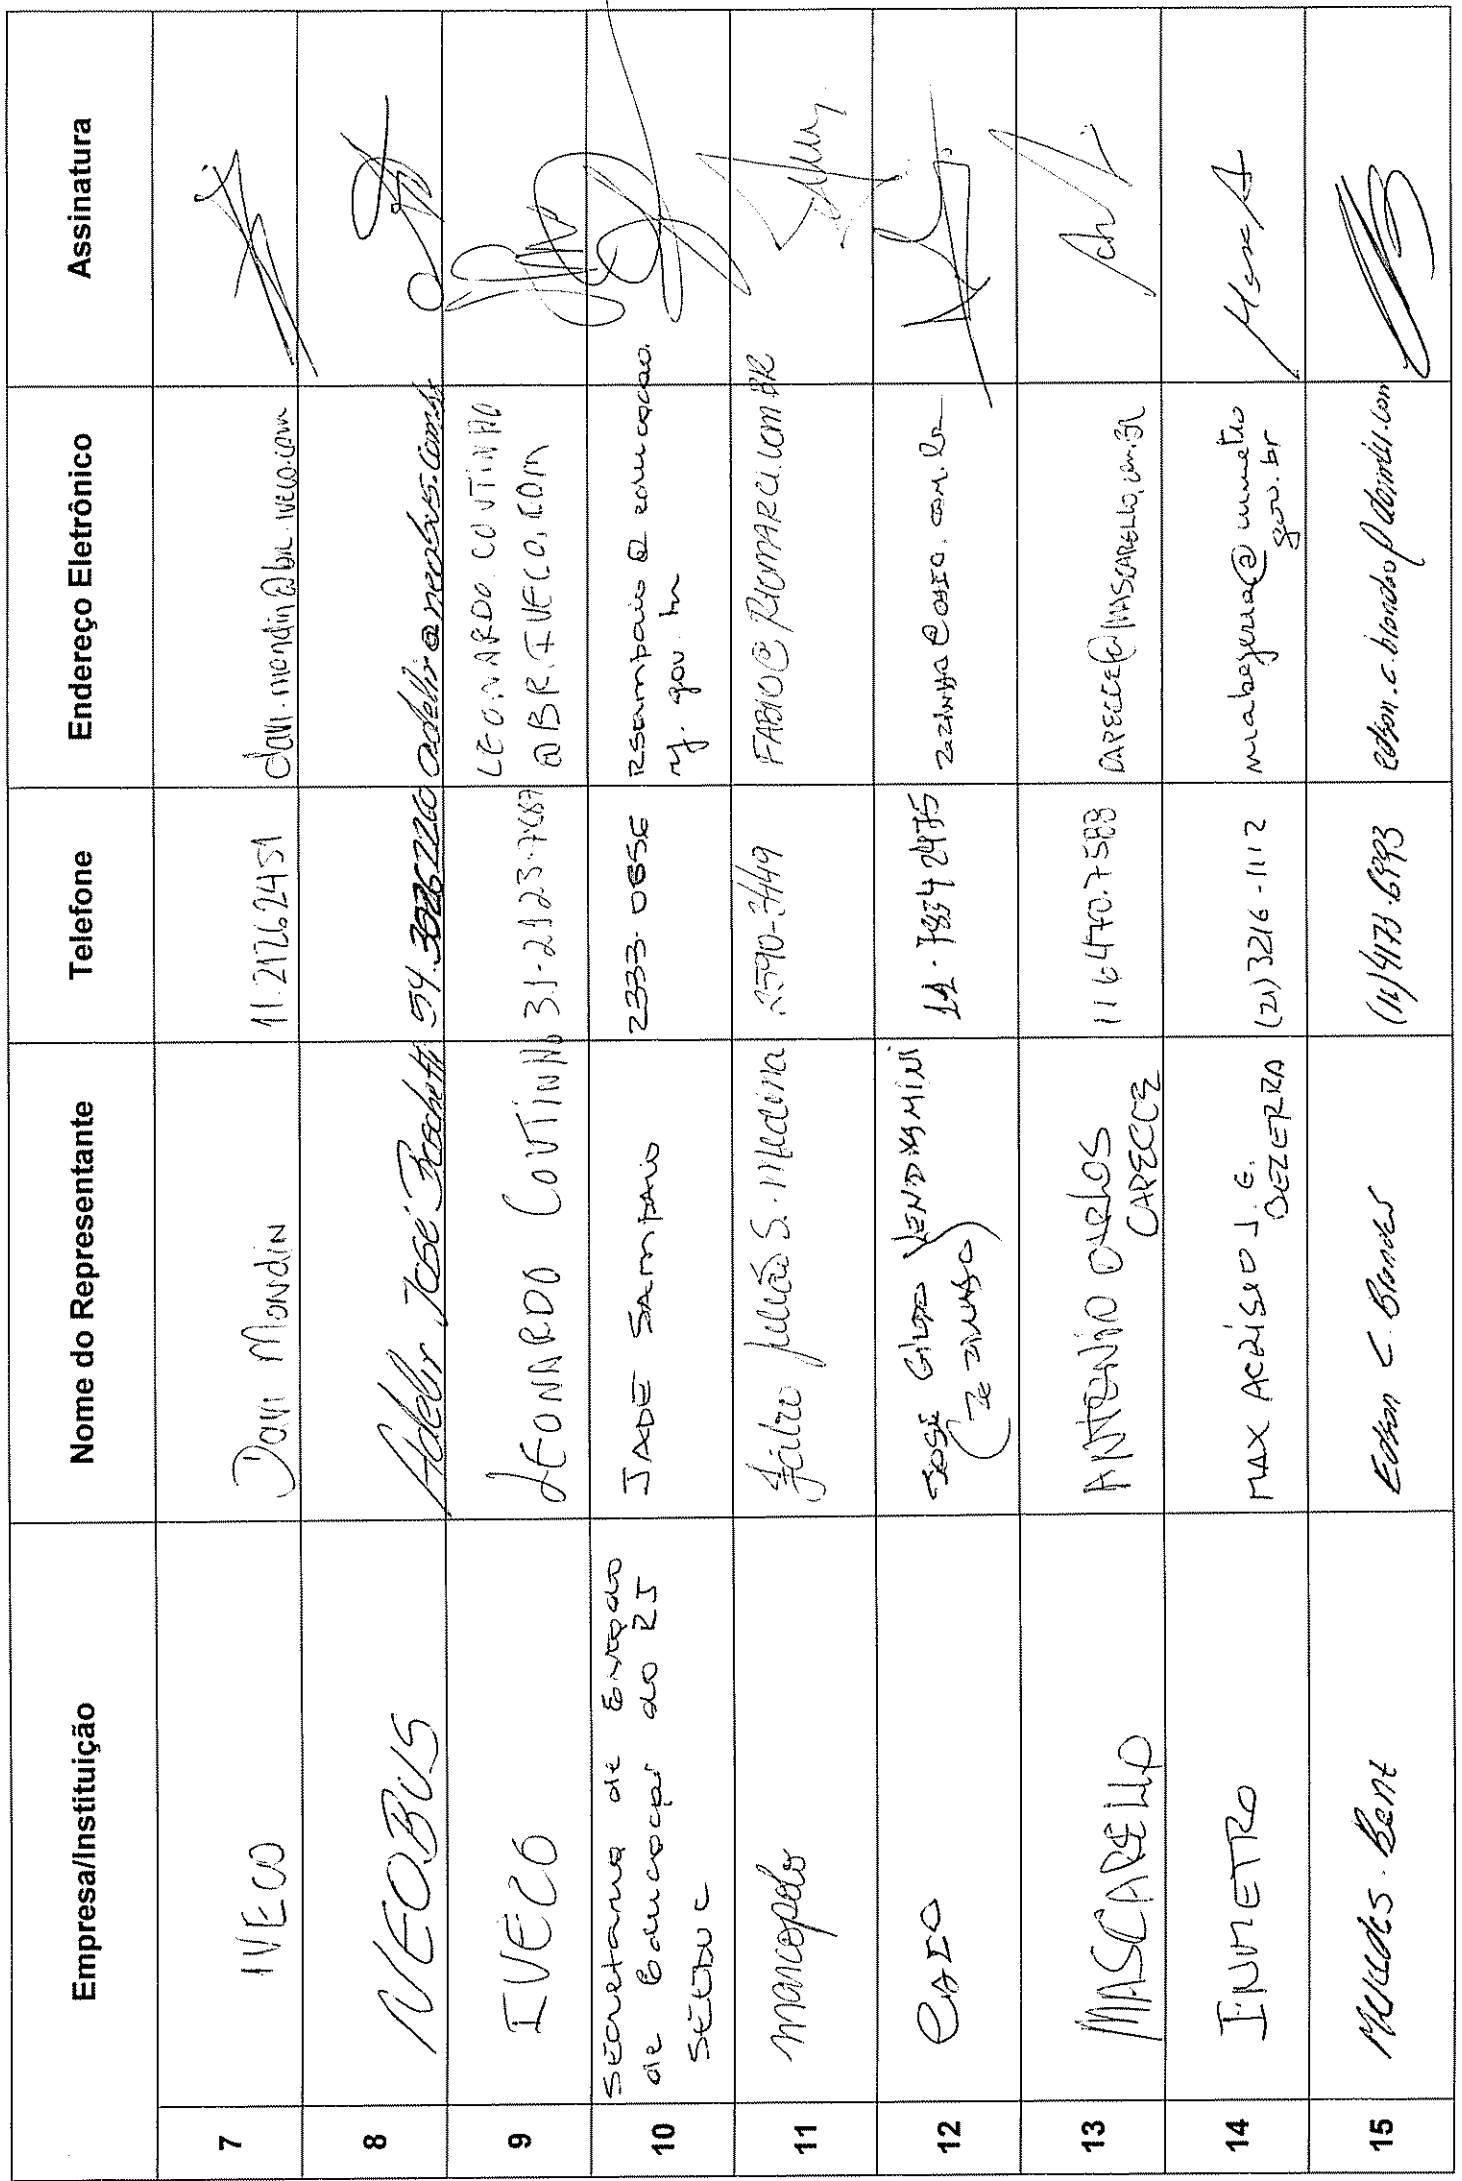 Empresa/Instituição Nome do Representante Telefone Endereço Eletrônico Assinatura
7 IVECO Davi Mondin 11.21262451 davi.mondin@br.iveco.com
8 NEOBUS Adelir José Boschetti 54.30262200 adelir@neobus.com.br
9 IVECO LEONARDO COUTINHO 31-2123-7487 LEONARDO.COUTINHO
@BR.IVECO.COM
10 Secretaria de Estado
de Educação do RJ
SEEDUC
JADE SAMPAIO 2333-0656 RSampaio@educacao.
rj.gov.br
11 marcopolo Fábio Julião S. Medina 2590-3449 FABIO@RIOMARCI.COM.BR
12 CAIO JOSÉ GILDO VENDRAMINI
(ZEZINHO)
11-78342475 zezinho@caio.com.br
13 MASCARELLO ANTONIO CARLOS
CAPECCE
11 6470.7588 CAPECCE@MASCARELLO.COM.BR
14 INMETRO MAX ACRÍSIO J. G.
BEZERRA
(21) 3216-1112 mabezerra@inmetro
gov.br
Max A
15 Mercedes-Benz Edson C. Brandão (11) 4173.6993